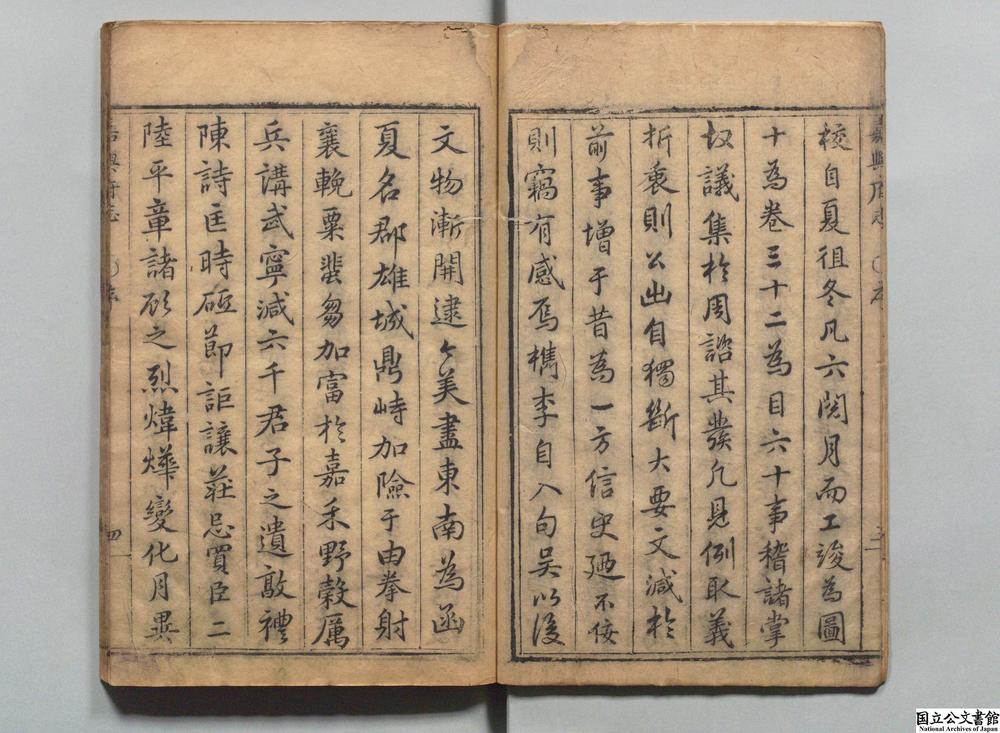 校自夏徂冬凡六閱月而工竣為圖
十為卷三十二為目六十事稽諸掌
故議集於周諮其發凡見例取義
折衷則公出自獨斷大要文減於
前事增于昔為一方信史廼不佞
則竊有感焉檇李自入句吳以後
文物漸開逮今美盡東南為函
夏名郡雄城鼎峙加險于由拳射
襄輓粟蜚芻加富於嘉禾野穀厲
兵講武寧減六千君子之遺敦禮
陳詩匡時砥節詎讓莊忌買臣二
陸平章諸顧之烈煒燁變化月異
嘉興府志
三
嘉興府志
四
国立公文書館
National Archives of Japan